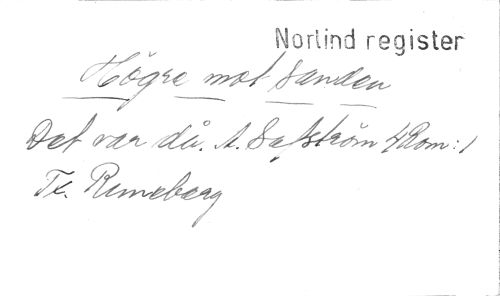 Norlind register
Högre mot sanden
Det var då. A. Säfström 4 Rom: 1
Tx. Runeberg